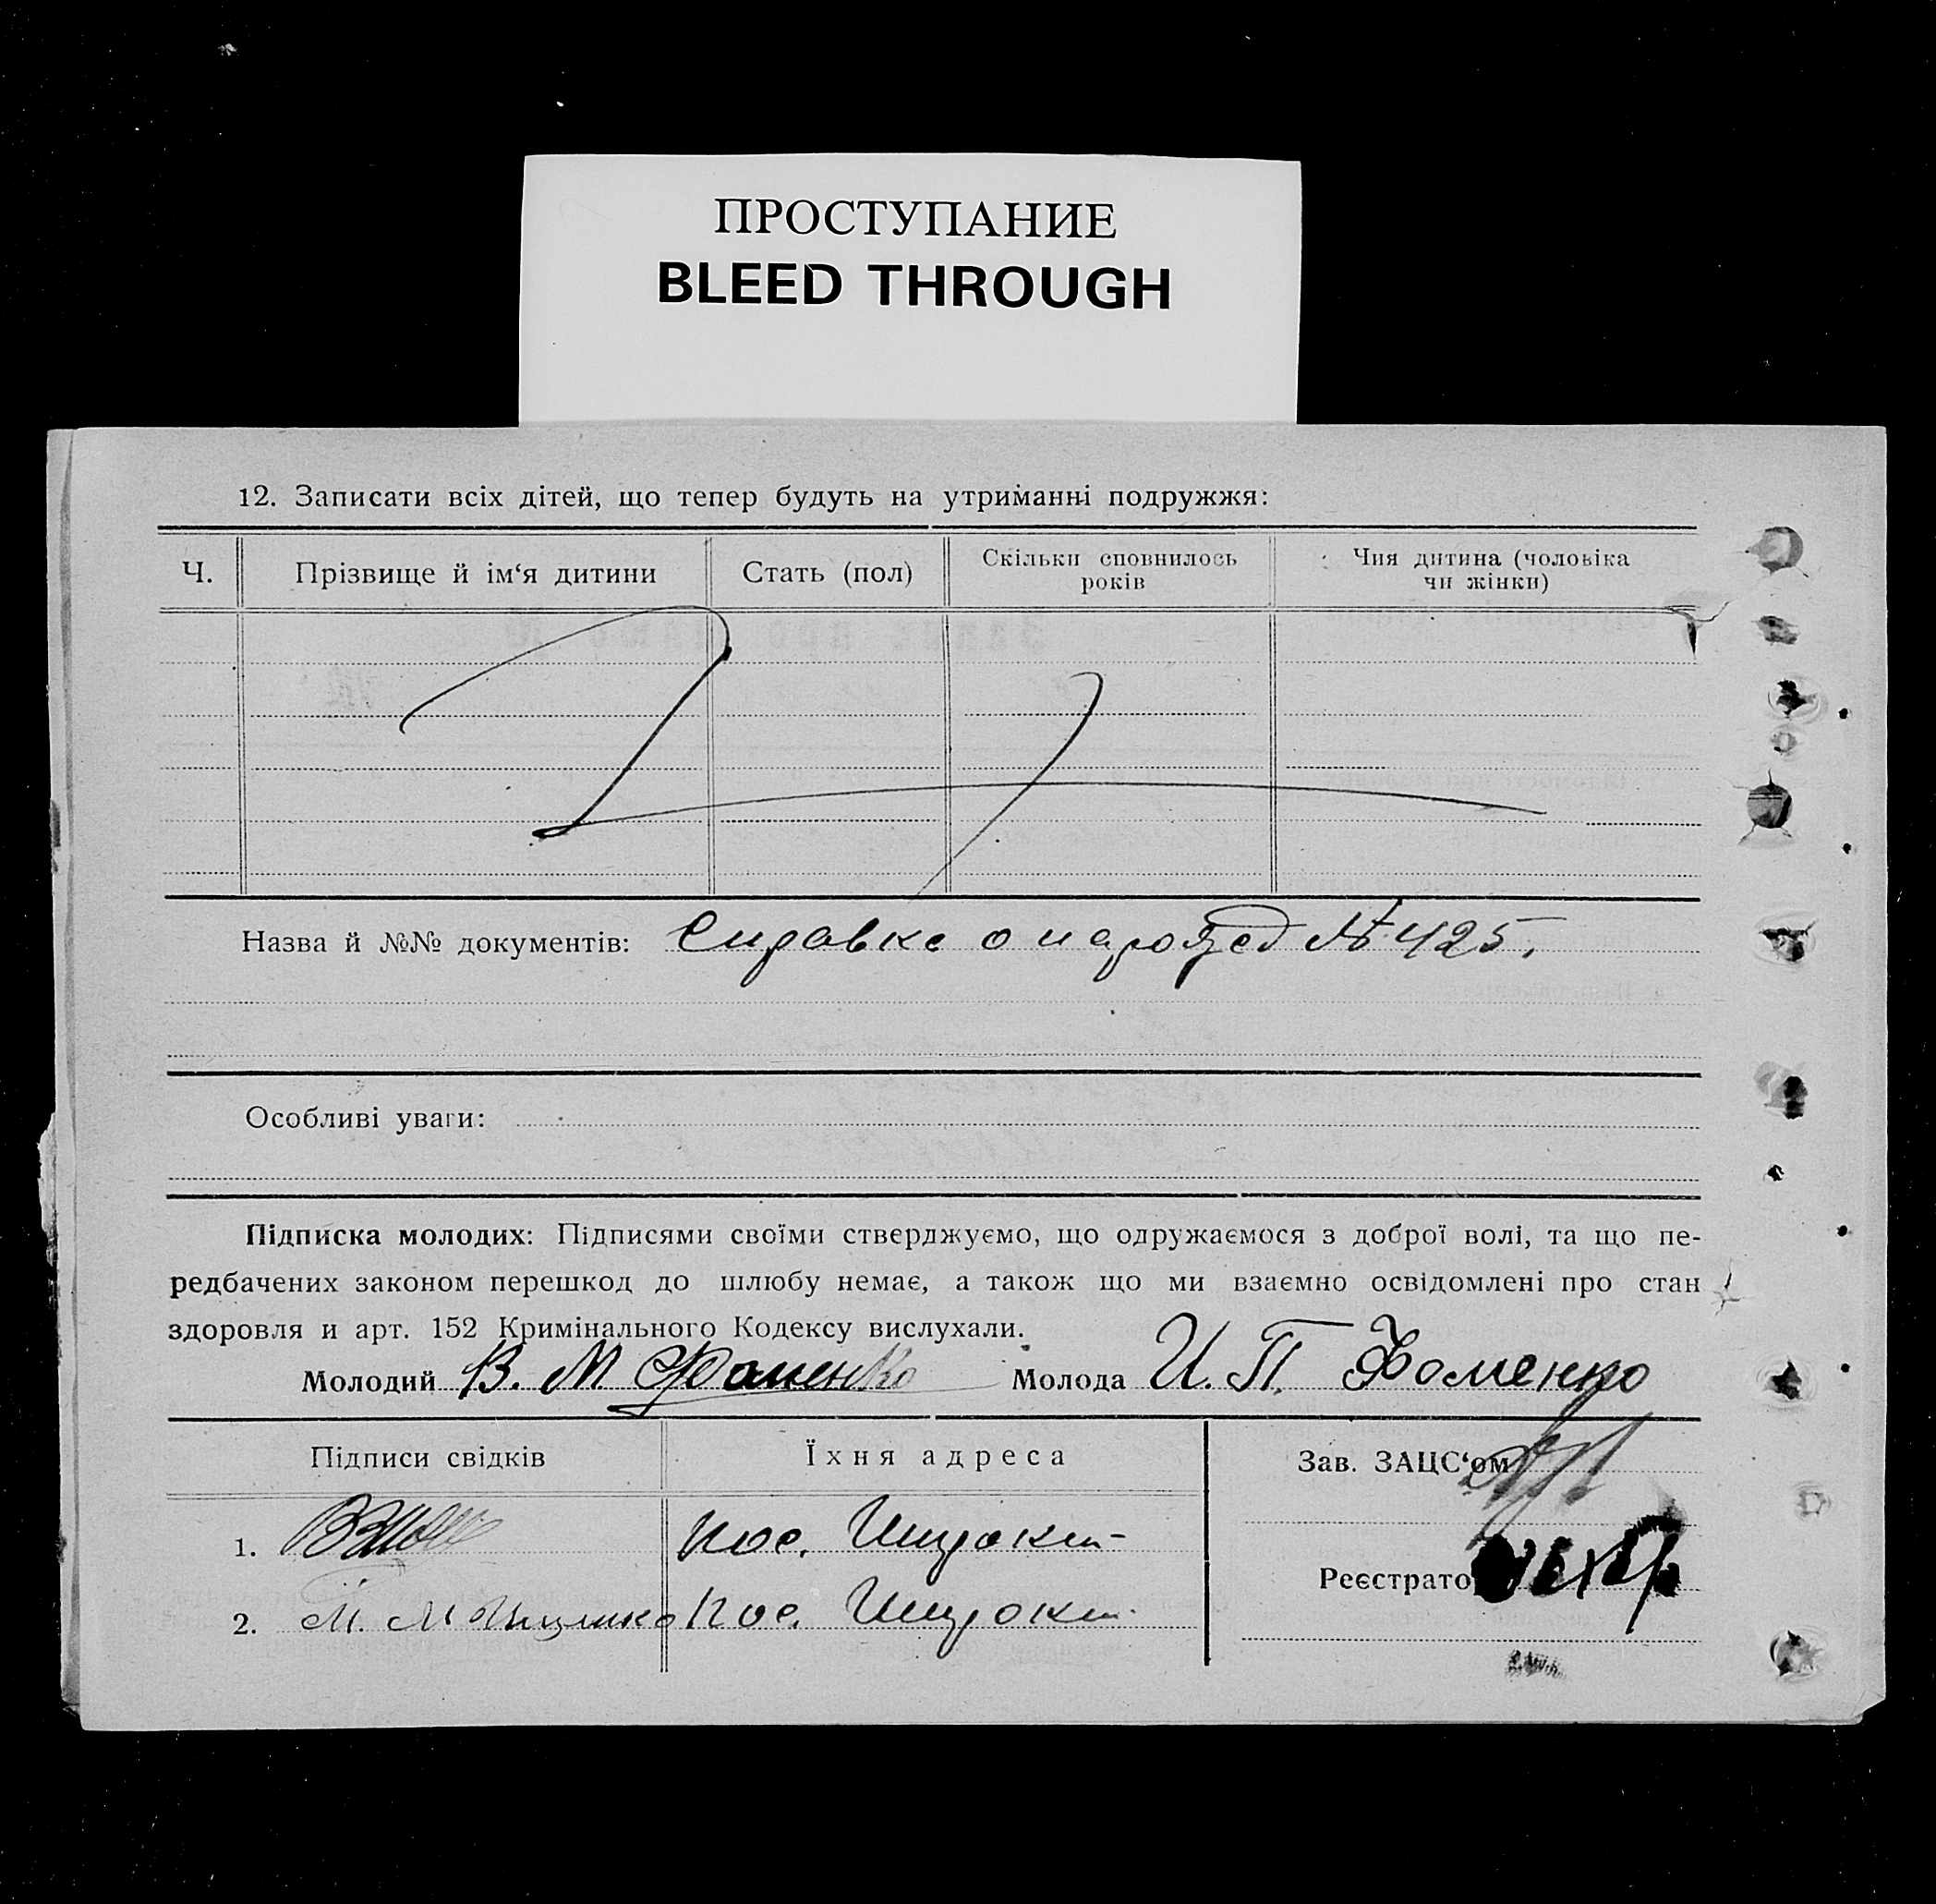 ПРОСТУПАНИЕ
BLEED THROUGH
12. Записати всіх дітей, що тепер будуть на утриманні подружжя:
Ч. Прізвище й ім‘я дитини Стать (пол) Скільки сповнилось років Чия дитина (чоловіка чи жінки)
Назва й №№ документів: Справка о № 425.
Особливі уваги:
Підписка молодих: Підписями своїми стверджуємо, що одружаємося з доброї волі, та що пе-
редбачених законом перешкод до шлюбу немає, а також що ми взаємно освідомлені про стан
здоровля и арт. 152 Кримінального Кодексу вислухали.
Молодий В. М. Фоменко Молода И. П. Фоменко
Підписи свідків Їхня адреса Зав. ЗАЦС‘ом
1. пос.
Реєстрато
2. М. пос.